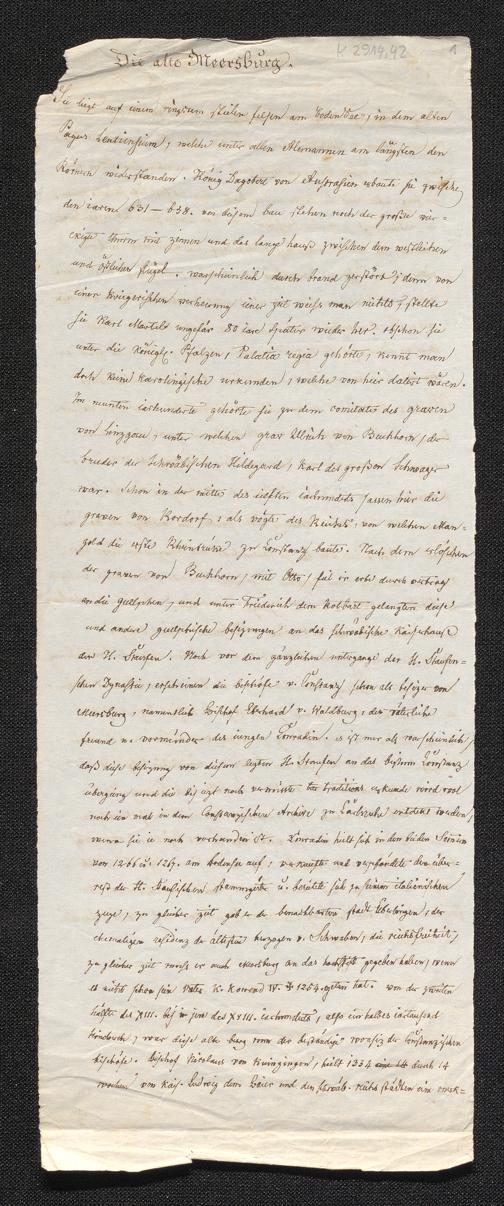 K 2914,42 1
Die alte Meersburg.
Sie liegt auf einem ringsum steilen felsen am bodensee, in dem alten
Pagus Lentiensium, welche unter allen Alemannen am längsten den
Römern widerstanden. König Dagobert von Austrasien erbaute sie zwischen
den iaren 631–638. von disem bau stehen noch der große vier=
ekigte thurm mit zinnen und das lange haus zwischen dem westlichen
und östlichen flügel. warscheinlich durch brand zerstört, denn von
einer kriegerischen verheerung iener zeit weiss man nichts, stellte
sie Karl Martell ungefär 80 iare später wieder her. obschon sie
unter die königl. Pfalzen, Palatia regia gehörte, kennt man
doch keine karolingische urkunden, welche von hier datirt wären.
Im neunten iarhunderte gehörte sie zu dem comitate des graven
von linzgau, unter welchen grav Ulrich von Buchhorn, der
bruder der Schwäbischen Hildegard, Karl des großen Schwager
war. Schon in der mitte des eilften iarhunderts sassen hier die
graven von Rordorf, als vögte des Reichs, von welchen Man=
gold die erste Rheinbrücke zu Constanz baute. Nach dem erlöschen
der graven von Buchhorn, mit Otto, fiel ir erbe durch vertrag
an die guelphen, und unter Friederich dem Rotbart gelangten diese
und andere guelphische besizungen an das schwäbische kaiserhaus
der H. Staufen. Noch vor dem gänzlichen untergange der H. Staufen=
schen Dynastie, erscheinen die bischöfe v. Constanz schon als besizer von
Meersburg, namentlich bischof Eberhard v. Waldburg, der väterliche
freund u. vormünder des iungen Conradin. es ist mer als warscheinlich,
daß diese besizung von diesem lezten H. Staufen an das bistum Constanz
übergieng und die bis iezt noch vermisste traditions urkunde wird wol
noch ein mal in dem Constanzischen Archive zu Carlsruhe entdekt werden,
wenn sie ie noch vorhanden ist. Conradin hielt sich in den beiden Somern
von 1266 u. 1267. am bodensee auf, verkaufte und verpfändete den über=
rest der H. Staufischen stammgüter u. bereitete sich zu seinem italienischen
zuge, zu gleicher zeit gab er der benachbarten stadt Überlingen, der
ehemaligen residenz der ältesten herzogen v. Schwaben, die reichsfreiheit,
zu gleicher zeit muss er auch Meersburg an das hochstift gegeben haben, wenn
es nicht schon sein Vater K. Konrad IV. † 1254. getan hat. von der zweiten
hälfte des XIII. bis in jene des XVIII. iarhunderts, also ein halbes iartausend
hindurch, war diese alte burg nun der beständige wonsiz der Constanzischen
bischöfe. bischof Nicolaus von Kenzingen, hielt 1334 durch 14
wochen von Kais. Ludwig dem Baier und den schwäb. reichsstädten eine merk=